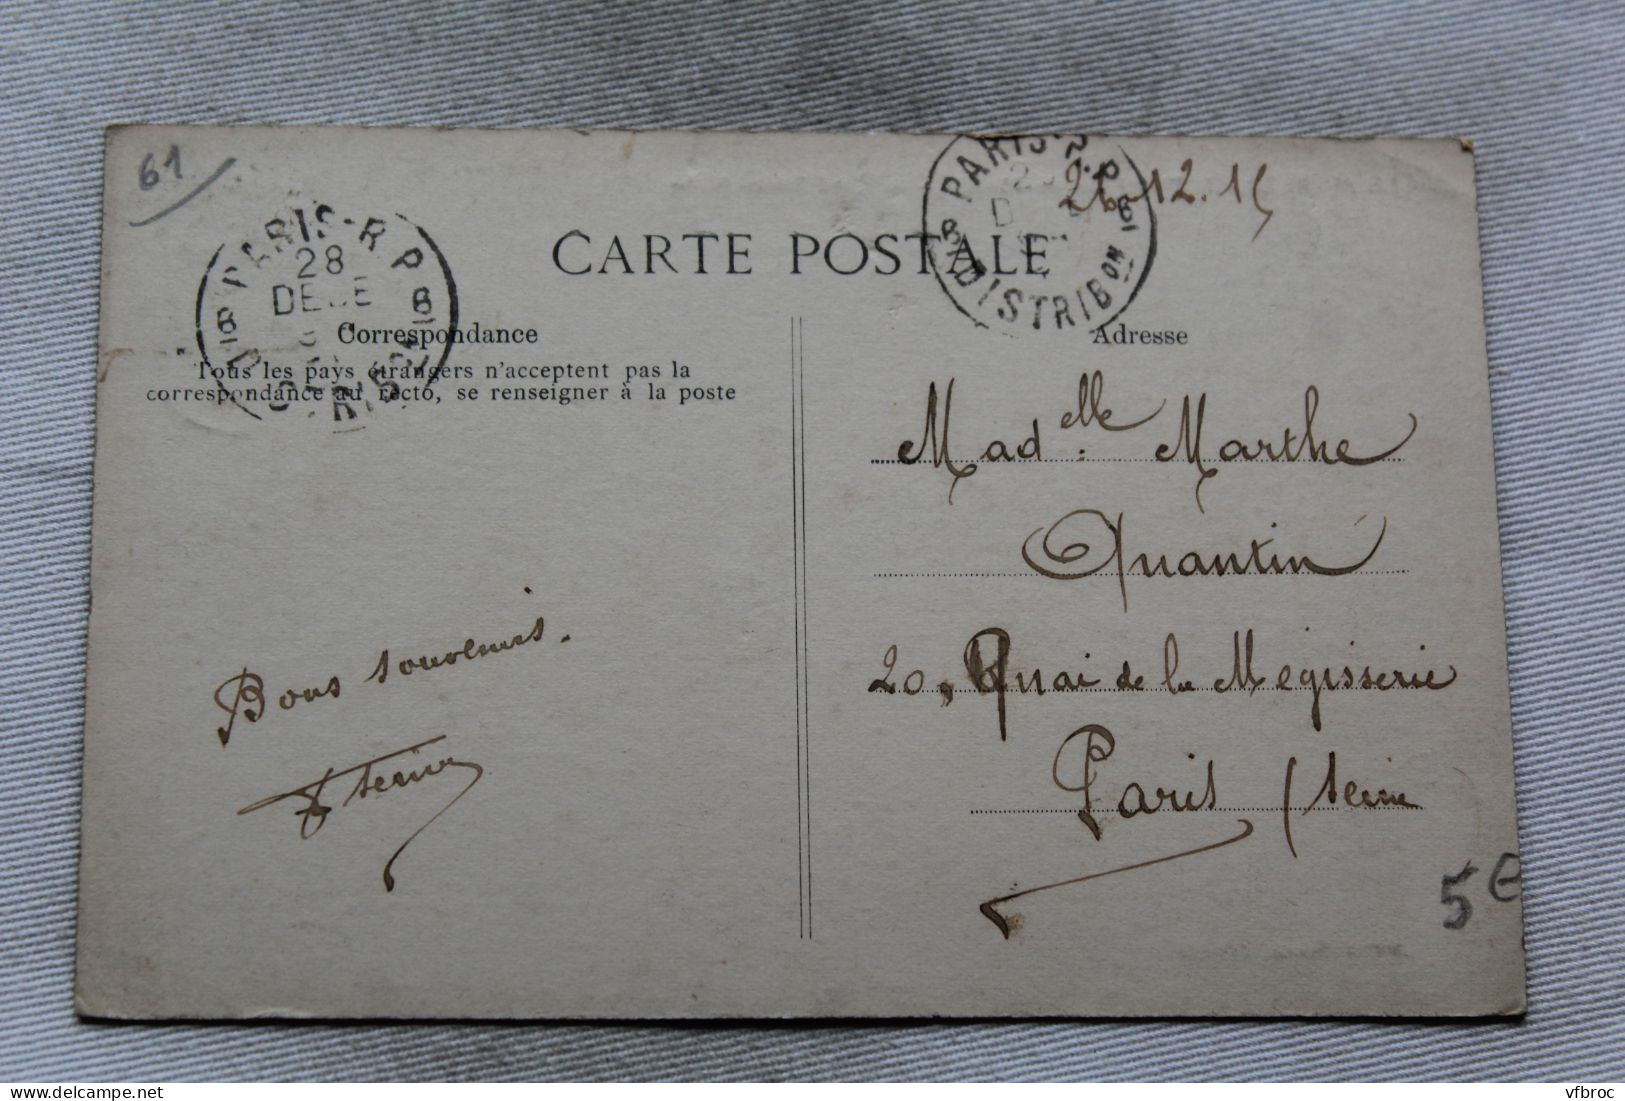 61
PARIS-R.P
28
DECE
PARIS R.P
DISTRIBON
26-12.15
CARTE POSTALE
Correspondance
Tous les pays étrangers n'acceptent pas la
correspondance au recto, se renseigner à la poste
Adresse
Madelle. Marthe
Quantin
20, Quai de la Mégisserie
Paris (Seine
Bons souvenirs.
5€
vfbroc